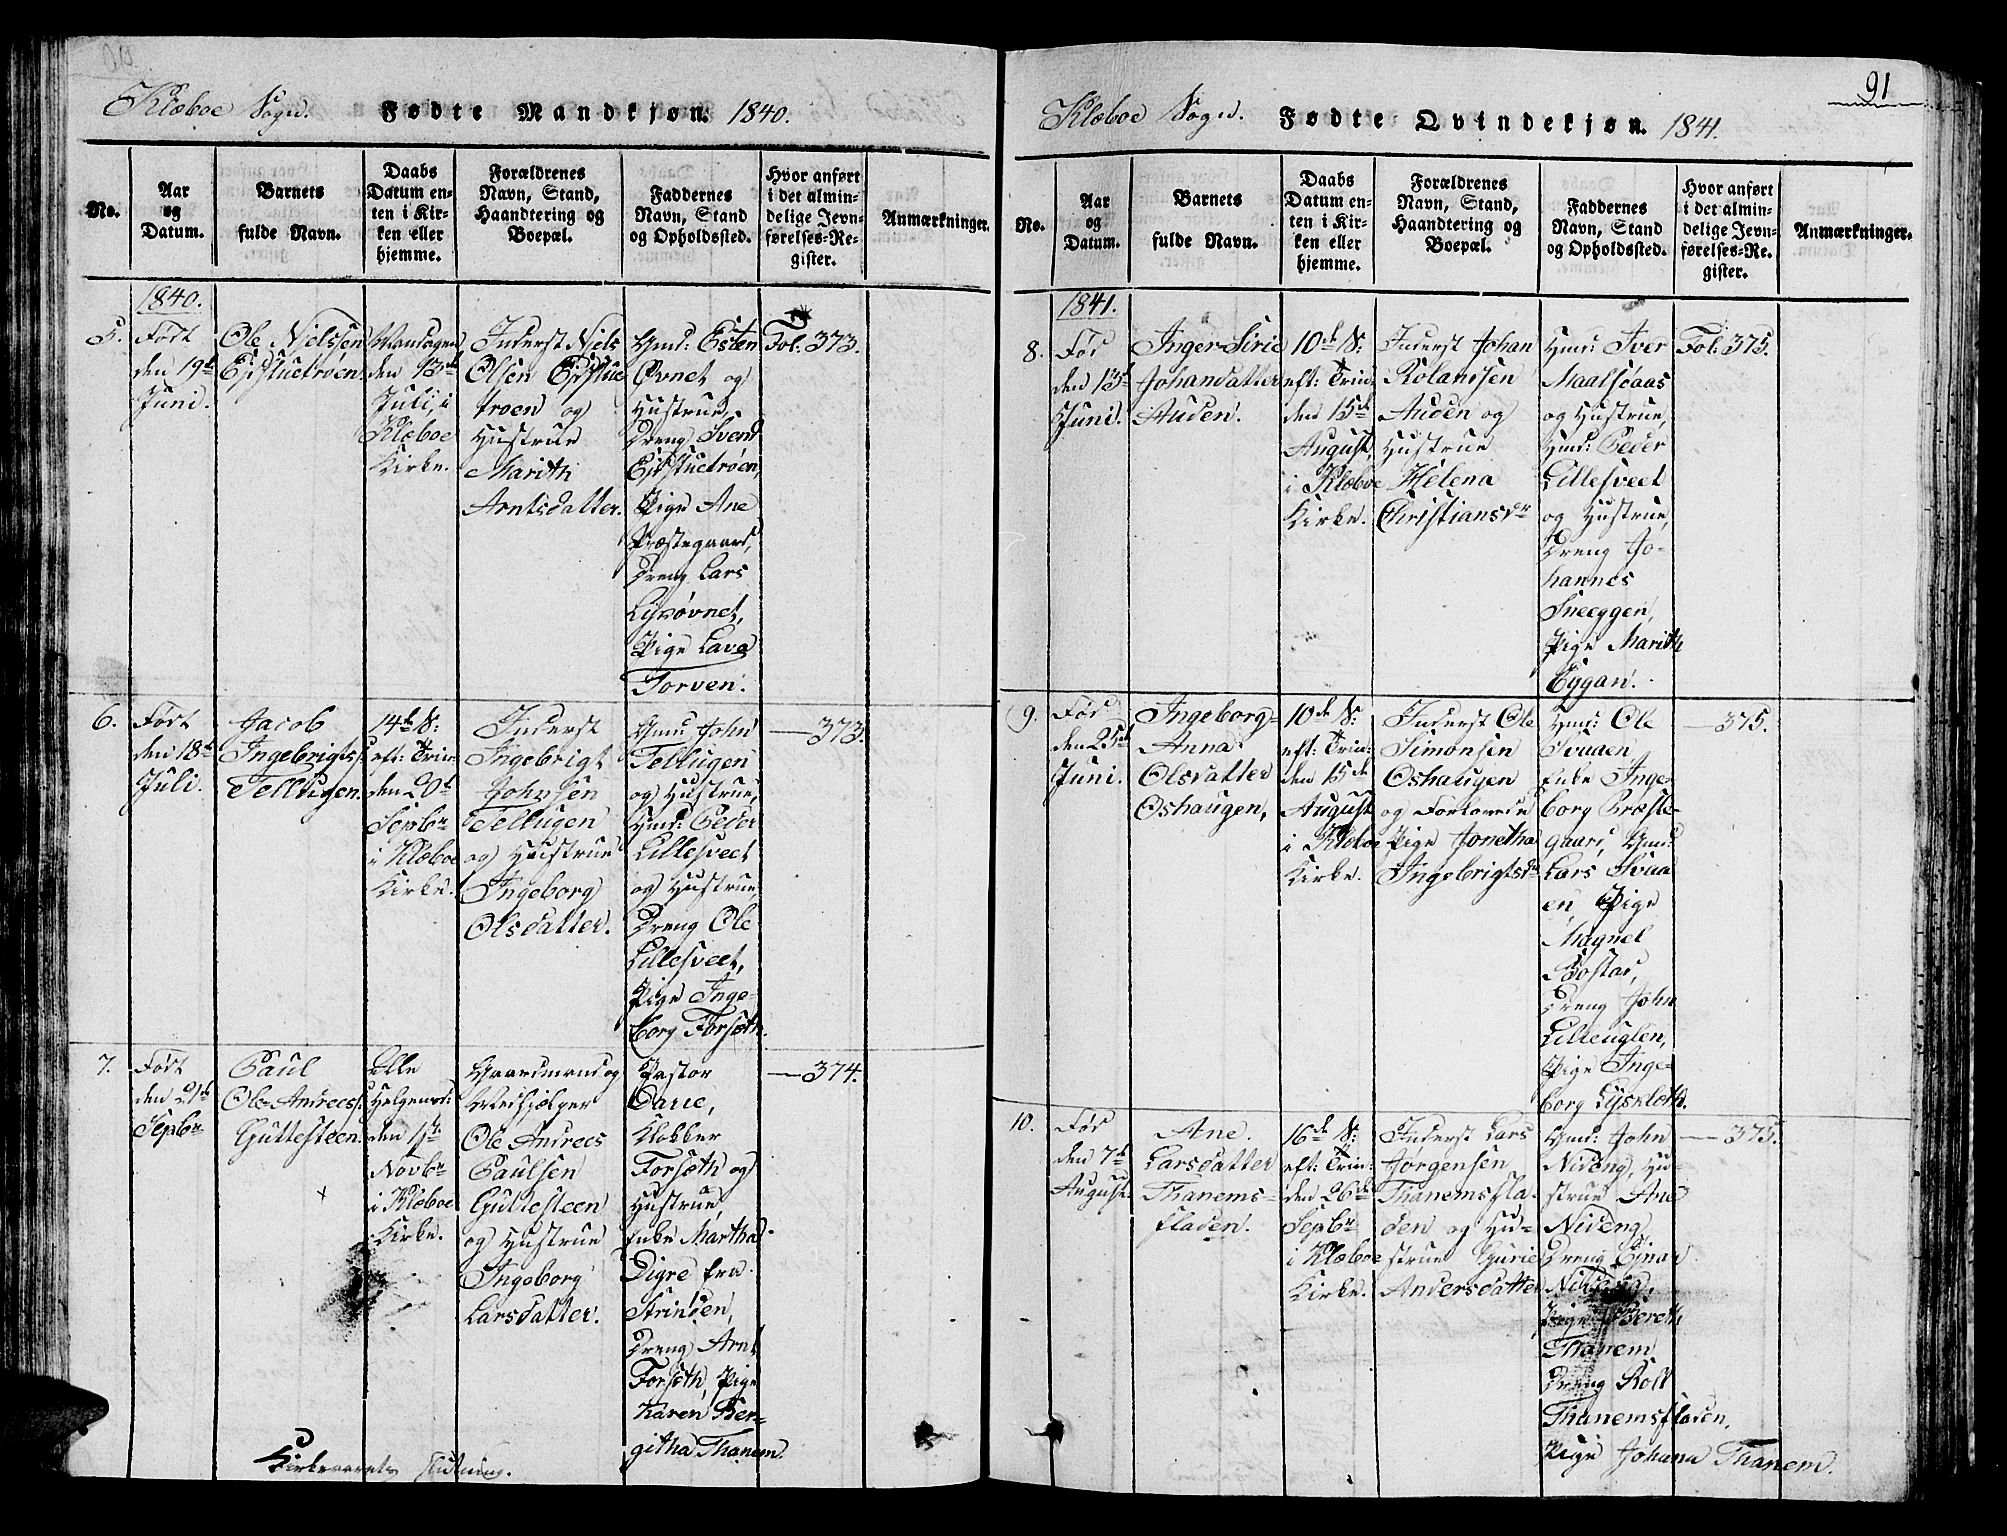 Klæboe Sogn. Fødte Mandkjøn. 1840.
No.
Aar
og
Datum.
Barnets
fulde Navn.
Daabs
Datum en-
ten i Kir-
ken eller
hjemme.
Forældrenes
Navn, Stand,
Haandtering og
Boepæl.
Faddernes
Navn, Stand
og Opholdssted.
Hvor anført
i det almin-
delige Jevn-
førelses-Re-
gister.
Anmærkninger.
1840.
5.
Født
den 19de
Juni.
Ole Nielssen
den 13de
Juli, i
Klæboe
Kirke.
Inderst Niels
Olsen
troen og
Hustrue
Marith
Arntsdatter.
Gmd: Esten
Øvnet og
Hustrue,
Dreng Svend
Pige Ane
Præstegaard,
Dreng Lars
Lysøvnet,
Pige Lava
Torven.
Fol. 373.
6.
Født
den 18de
Juli.
Jacob
Ingebrigts:
Tellugen.
14de S:
eft: Trin:
den 20de
Sepbr
i Klæboe
Kirke.
Inderst
Ingebrigt
Johnsen
Tellugen
og Hustrue
Ingeborg
Olsdatter.
Gmd: John
Tellugen
og Hustrue,
Gmd: Peder
Lillesveet
og Hustrue
Dreng Ole
Lillesveet,
Pige Inge-
borg Forsæth.
— 373.
7.
Født
den 21de
Sepbr
Paul
Ole Andrees:
Guttesteen.
Alle
Helgensd:
den 1ste
Novbr
i Klæboe
Kirke.
Gaardmand og
Medhjælper
Ole Andrees
Paulsen
Guttesteen
og Hustrue
Ingeborg
Larsdatter.
Pastor
Darre,
Klokker
Forsæth og
Hustrue,
Enke Martha
Digre fra
Strinden,
Dreng Arnt
Forsæth, Pige
Karen Ber-
githa Thanem.
— 374.
Kirkeaarets Slutning.
91
Klæboe Sogn. Fødte Qvindekjøn. 1841.
No.
Aar
og
Datum.
Barnets
fulde Navn.
Daabs
Datum en-
ten i Kir-
ken eller
hjemme.
Forældrenes
Navn, Stand,
Haandtering og
Boepæl.
Faddernes
Navn, Stand
og Opholdssted.
Hvor anført
i det almin-
delige Jevn-
førelses-Re-
gister.
Anmærkninger.
1841.
8.
Fød
den 13de
Juni.
Inger-Sirie
Johansdatter
Auden.
10de S:
eft: Trin:
den 15de
August
i Klæboe
Kirke.
Inderst Johan
Rolandsen
Auden og
Hustrue
Helena
Christiansdr
Gmd: Iver
Maalsöaas
og Hustrue,
Gmd: Peder
Lillesveet
og Hustrue,
Dreng Jo-
hannes
Sneeggen,
Pige Marith
Eggan.
Fol. 375.
9.
Fød
den 25de
Juni.
Ingeborg-
Anna
Olsdatter
Oshaugen,
10de S:
eft: Trin:
den 15de
August
i Klæboe
Kirke.
Inderst Ole
Simonsen
Oshaugen
og Forlovede
Pige Jonetha
Ingebrigtsdr
Gmd: Ole
Svuaen,
Enke Inge-
borg Præste-
gaard, Gmd:
Lars Svua
en, Pige
Magnel
Bostad,
Dreng John
Lilleuglen,
Pige Inge-
borg Lyskloth.
— 375.
10.
Fød
den 7de
August.
Ane
Larsdatter
Thanems-
fladen.
16de S:
eft: Trin:
den 26de
Sepbr
i Klæboe
Kirke.
Inderst Lars
Jørgensen
Thanemsfla-
den og Hu-
strue Gurie
Andersdatter
Gmd: John
Nideng, Hu-
strue Ane
Nideng
Dreng Einar
Nideng,
Pige Bereth
Thanem
Dreng Rolt
Thanemsfladen,
Pige Johana Thanem.
— 375.